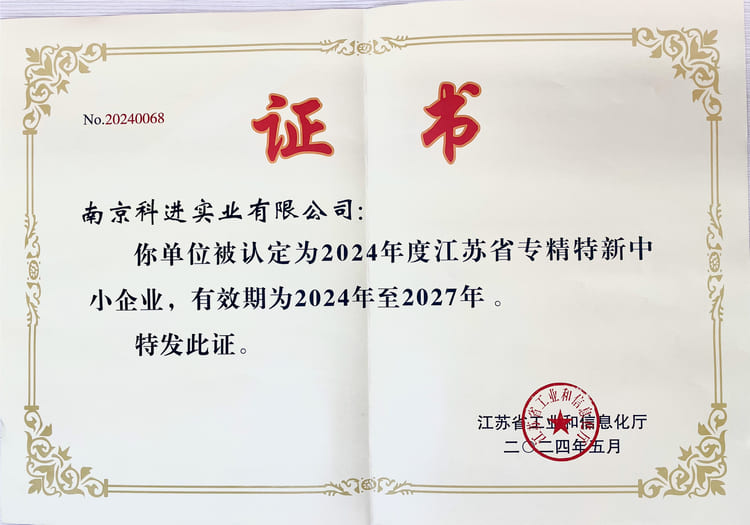 证书
No.20240068
南京科进实业有限公司：
你单位被认定为2024年度江苏省专精特新中
小企业，有效期为2024年至2027年。
特发此证。
江苏省工业和信息化厅
二〇二四年五月
江苏省工业和信息化厅